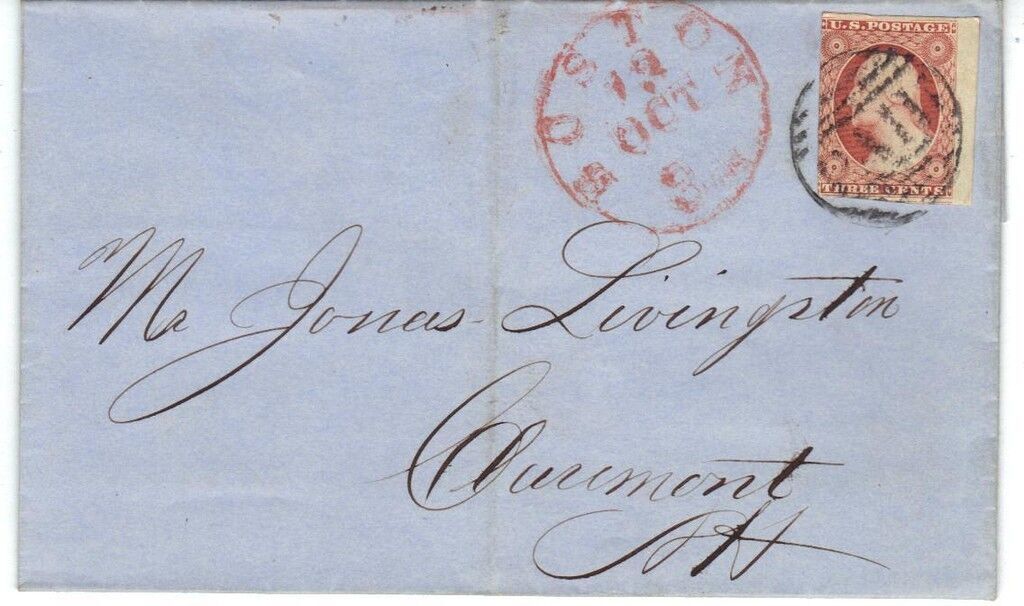 BOSTON
12
OCT
3 cts
U.S. POSTAGE
THREE CENTS
Mr Jonas Livingston
Claremont
NH